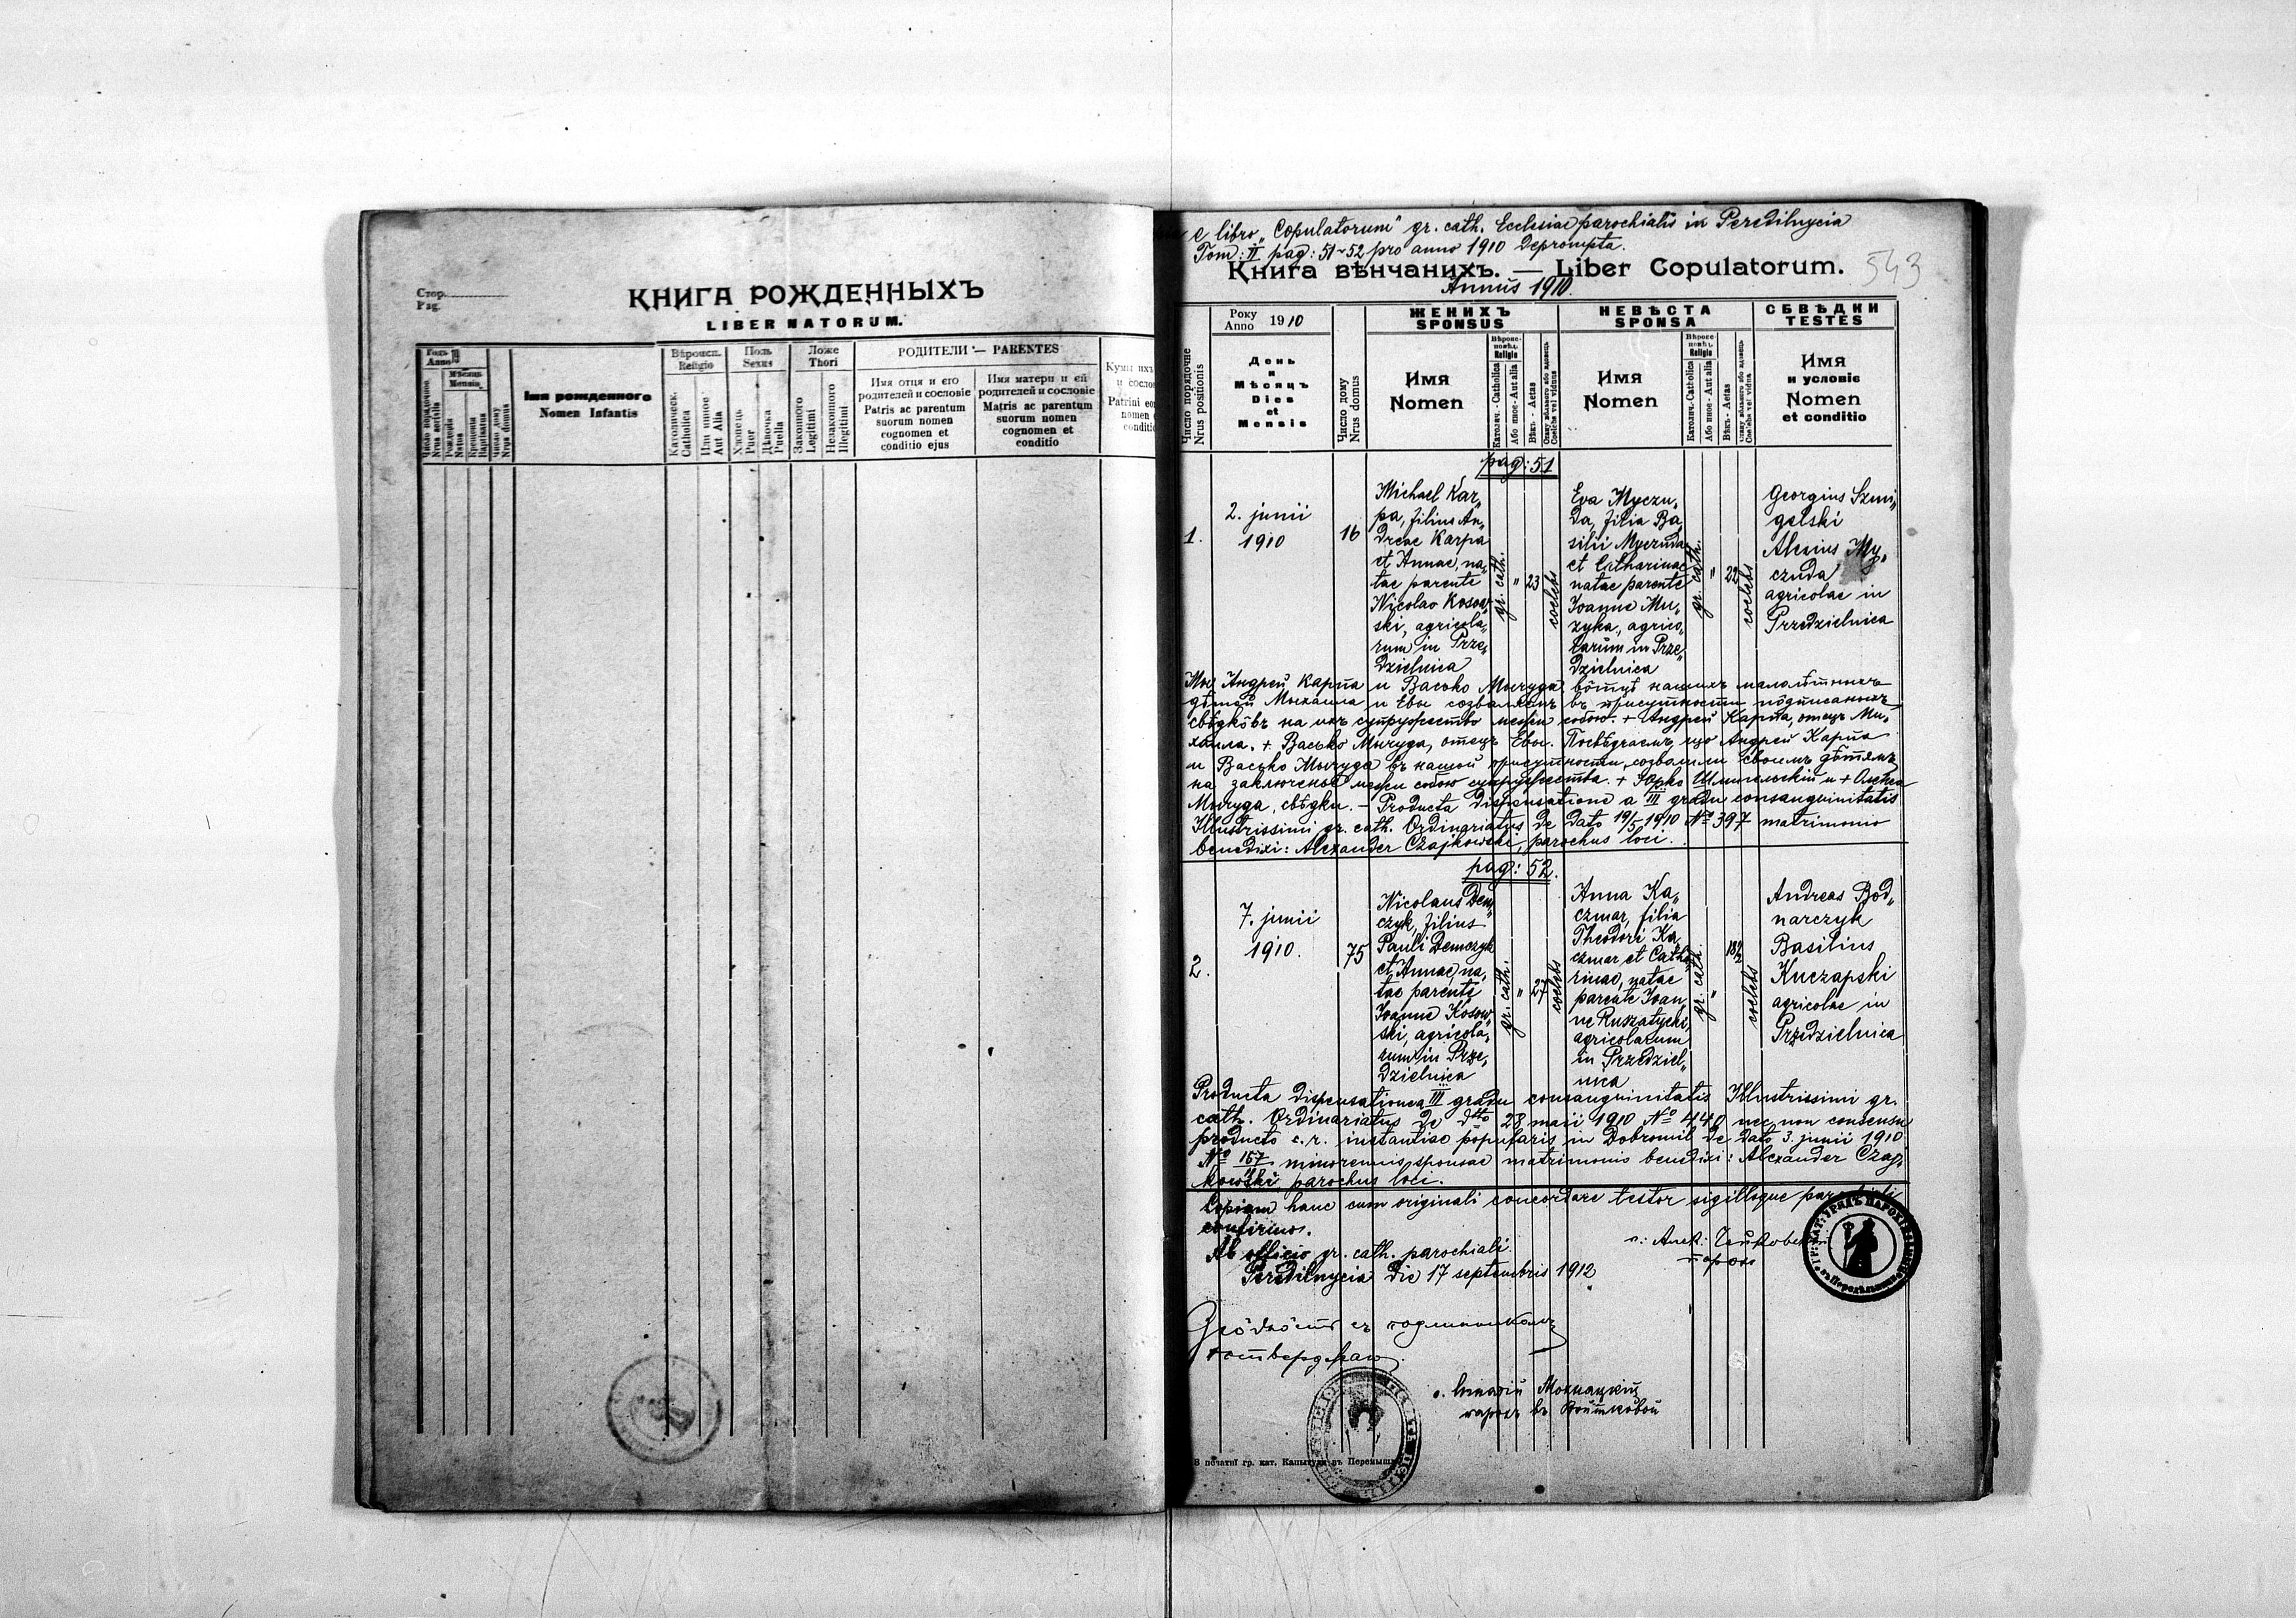 Стор.
Pag.
КНИГА РОЖДЕННЫХЪ
LIBER NATORUM.
Годъ
Anno
Мѣсяць
Mensis
Число порядочное
Nrus serialis
Рожденія
Natus
Крещенія
Baptisatus
Число дому
Nrus domus
Імя рожденного
Nomen Infantis
Вѣроисп.
Religio
Католическ.
Catholica
Или инное
Aut Alia
Полъ
Sexus
Хлопець
Puer
Дѣвочка
Puella
Ложе
Thori
Законного
Legitimi
Незаконного
Illegitimi
РОДИТЕЛИ — PARENTES
Имя отця и его
родителей и сословіе
Patris ac parentum
suorum nomen
cognomen et
conditio ejus
Имя матери и єй
родителей и сословіе
Matris ac parentum
suorum nomen
cognomen et
conditio
Кумы ихъ
и сосло
Patrini eo
nomen
conditio
e libro „Copulatorum" gr. cath. Ecclesiae parochialis in Peredilnycia
Tom: II pag: 51-52 pro anno 1910 deprompta.
Книга вѣнчанихъ. — Liber Copulatorum.
543
Annus 1910.
Число порядочне
Nrus positionis
Року
Anno 1910
День
и
Мѣсяцъ
Dies
et
Mensis
Число дому
Nrus domus
ЖЕНИХЪ
SPONSUS
Имя
Nomen
Вѣроис-
повѣд.
Religio
Католич. - Catholica
Або инное - Aut alia
Вѣкъ - Aetas
Coelebs vel viduus
НЕВѢСТА
SPONSA
Имя
Nomen
Вѣроис-
повѣд.
Religio
Католич. - Catholica
Або инное - Aut alia
Вѣкъ - Aetas
Coelebs vel vidua
СБВѢДКИ
TESTES
Имя
и условіє
Nomen
et conditio
pag: 51
1.
2. junii
1910
16
Michael Kar„
pa, filius An„
dreae Karpa
et Annae, na„
tae parente
Nicolao Kosow„
ski, agricola„
rum in Prze„
dzielnica
gr. cath.
"
23
coelebs
Eva Myczu„
da, filia Ba„
silii Myczuda
et Catharinae
natae parente
Joanne Mu„
zyka, agrico„
larum in Prze„
dzielnica
gr. cath.
"
22
coelebs
Georgius Szmi„
gelski
Alexius My„
czuda
agricolae in
Przedzielnica
Мы Андрей Карпа и Васько Мычуда, вôтцѣ нашихъ малолѣтныхъ
дѣтей Михаила и Евы созваляємъ въ присутности пôдписаныхъ
свѣдкôвъ на ихъ супружество межи собою. + Андрей Карпа, отецъ Ми„
хаила. + Васько Мычуда, отецъ Евы. Посвѣдчаемъ, що Андрей Карпа
и Васько Мычуда въ нашой присутности созволили своимъ дѣтямъ
на заключеньє межи собою супружества. + Юрко Шмигельскій и + Олекса
Мычуда, свѣдки. - Producta dispensatione a III gradu consanguinitatis
Illustrissimi gr. cath. Ordinariatus de dato 19/5 1910 Nº 397 matrimonio
benedixi: Alexander Czajkowski, parochus loci.
pag: 52.
2.
7. junii
1910.
75
Nicolaus Dem„
czyk, filius
Pauli Demczyk
et Annae, na„
tae parente
Joanne Kosow„
ski, agricola„
rum in Prze„
dzielnica
gr. cath.
"
27
coelebs
Anna Ka„
czmar, filia
Theodori Ka„
czmar et Catha„
rinae, natae
parente Joan„
ne Ruszatycki,
agricolarum
in Przedziel„
nica
gr. cath.
"
18½
coelebs
Andreas Bod„
narczyk
Basilius
Kuczapski
agricolae in
Przedzielnica
Producta dispensatione a III gradu consanguinitatis Illustrissimi gr.
cath. Ordinariatus de dtto 28 maii 1910 Nº 440 nec non consensu
producto c. r. instantiae popularis in Dobromil de dato 3. junii 1910
Nº 157 minorennis sponsae matrimonio benedixi: Alexander Czaj„
kowski parochus loci.
Copiam hanc cum originali concordare testor sigilloque parochiali
confirmo.
Ab officio gr. cath. parochiali.
Peredilnycia die 17 septembris 1912
о: Алек: Чайковскій
парох
Згôднôсть съ подлинникомъ
потверджаю.
о. Игнатій Мохнацкій
парохъ въ Войтковой
В печатнї гр. кат. Капытулы въ Перемышли